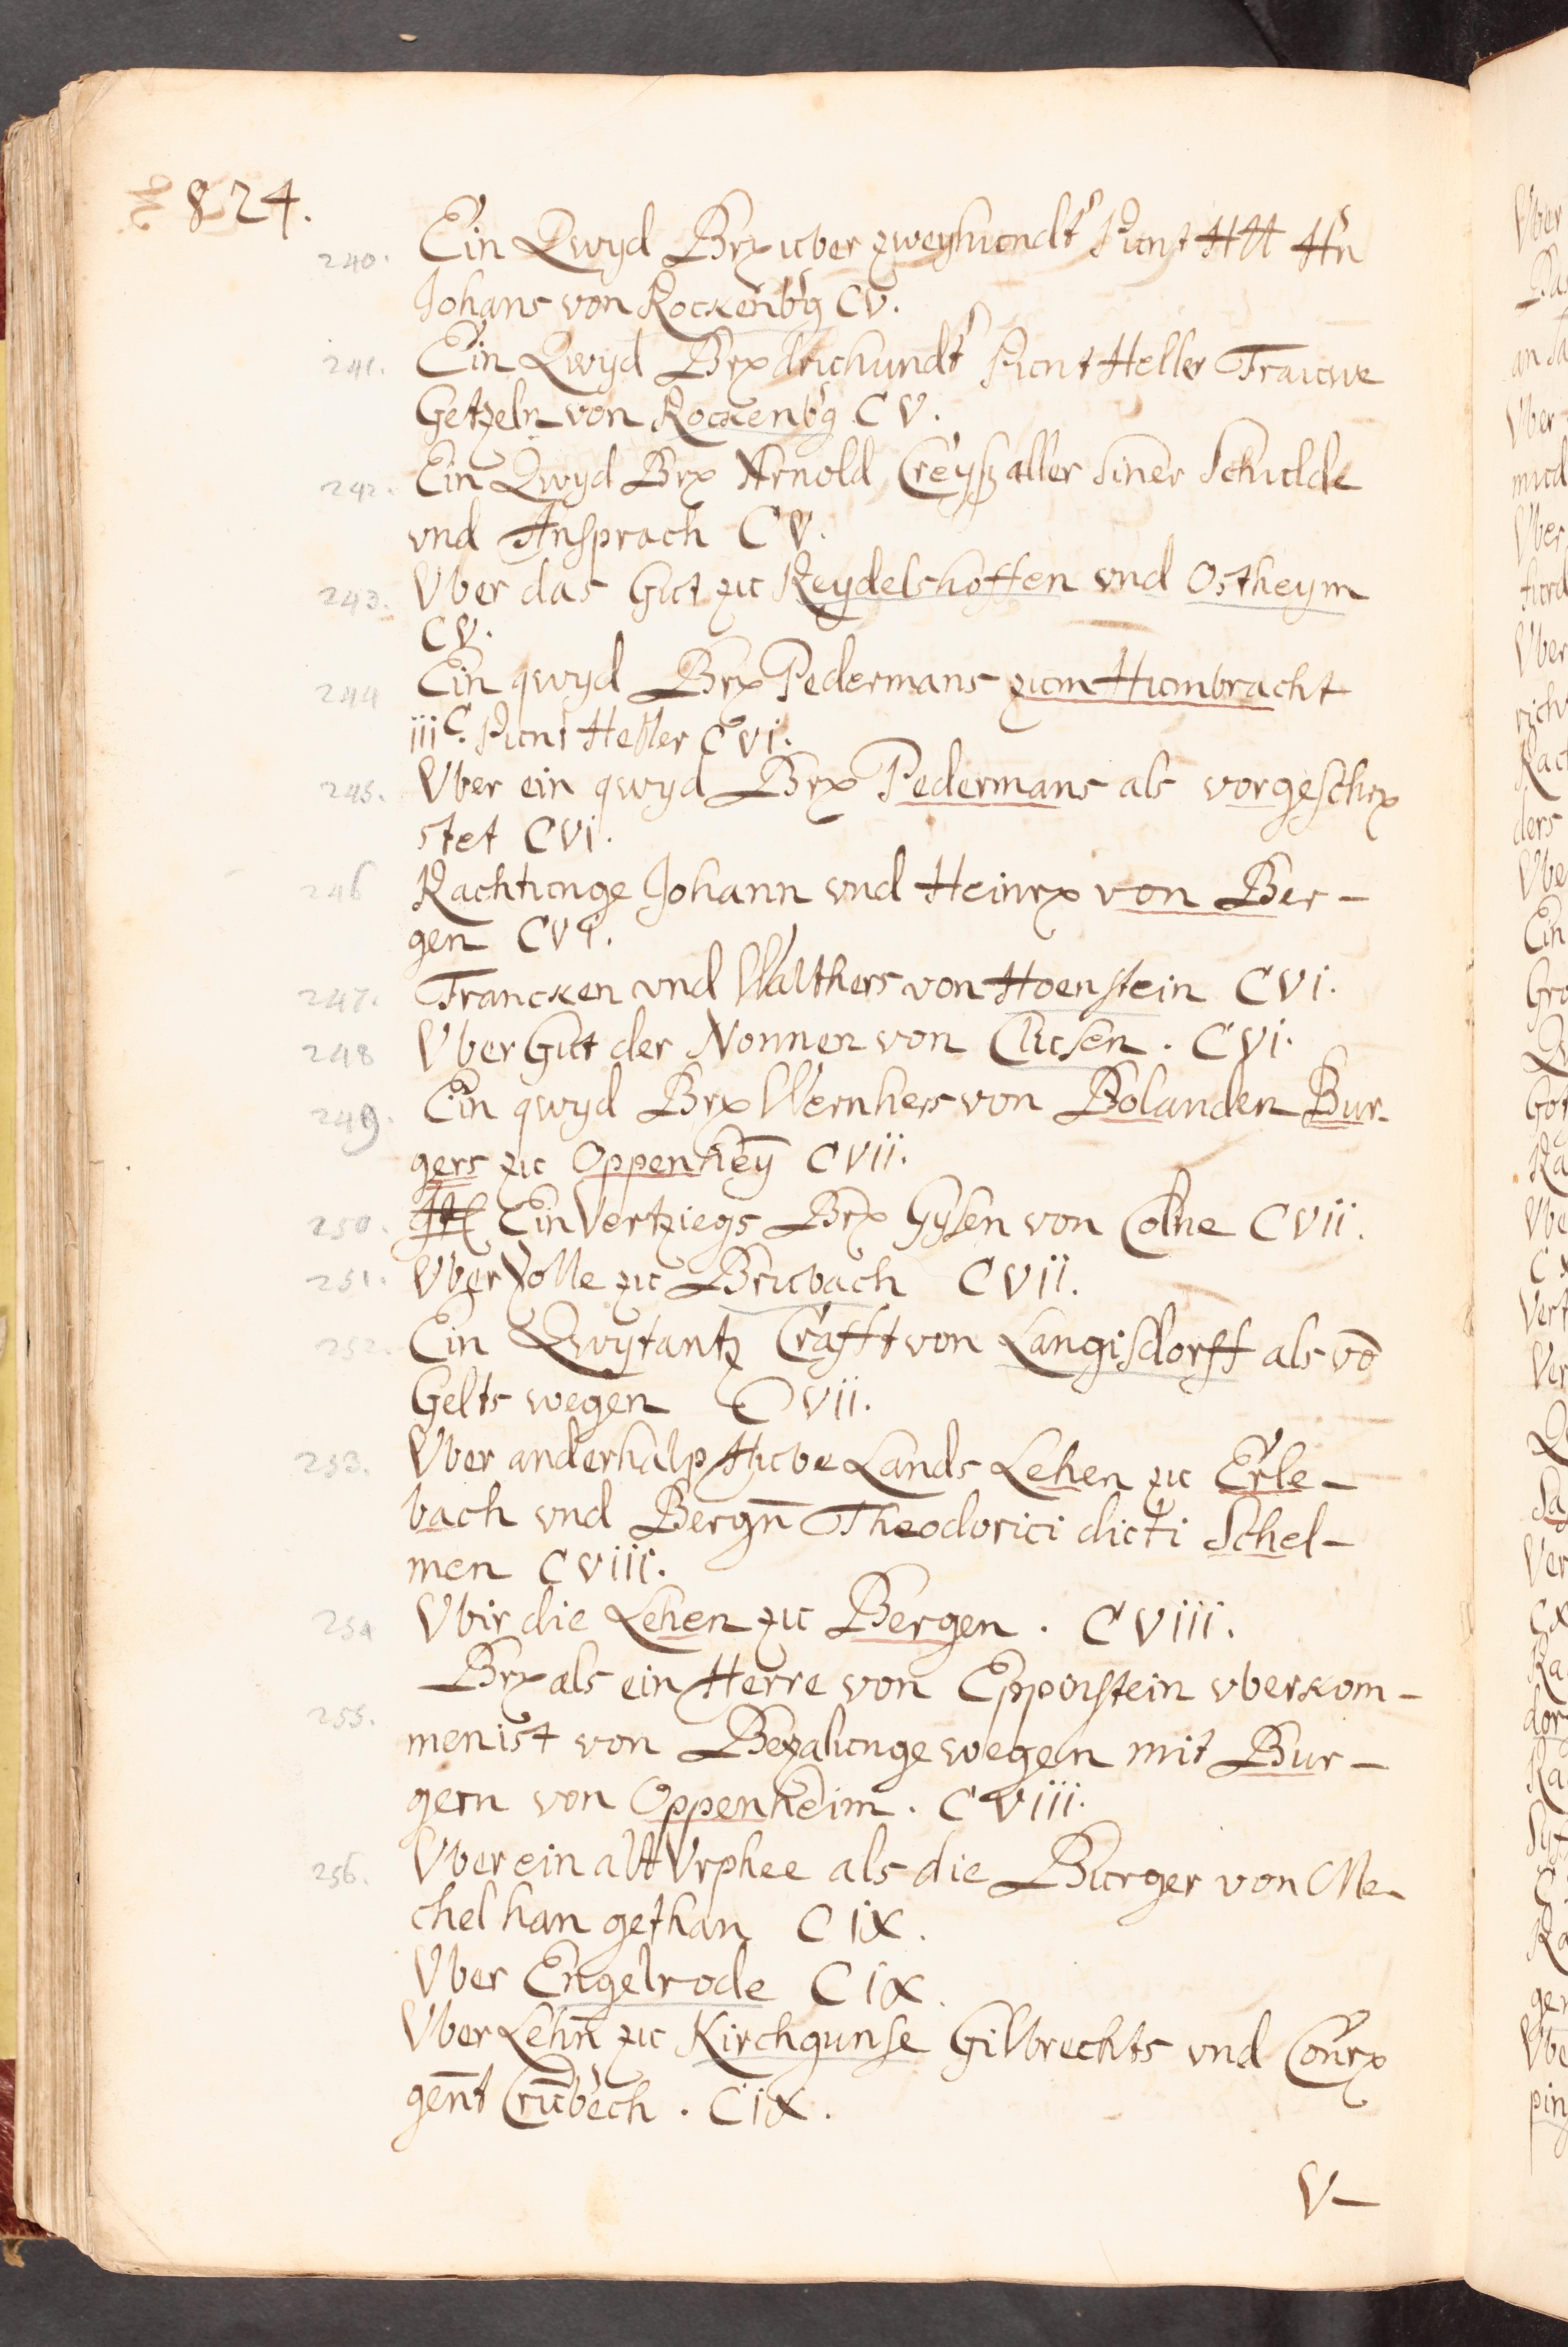 824.
240. Ein Qwyd Brx uber zweyhundt Punt Hll Hn
Johans von Rockenbg CV.
241. Ein Qwyd Brx driehundt Punt Heller Frauwe
Getzeln von Rockenbg CV.
242. Ein Qwyd Brx Arnold Creyß aller siner Schulde
vnd Ansprach CV.
243. Vber das Gut zu Reydelshoffen vnd Ostheym
CV.
244 Ein qwyd Brx Pedermans zum Humbracht
iiiC. Punt Heller CVi.
245. Vber ein qwyd Brx Pedermans als vorgeschrx
stet CVi.
246 Rachtunge Johann vnd Heinrx von Ber-
gen CVi.
247. Francken vnd Walthers von Hoenstein CVi.
248 Vber Gut der Nonnen von Clusen. CVi.
249. Ein qwyd Brx Wernhers von Bolanden Bur-
gers zu Oppenhey CVii.
250. Ein Vertziegs Brx Gysen von Colne CVii.
251. Vber Zolle zu Brubach CVii.
252. Ein Qwytantz Crafft von Langisdorff als vo
Gelts wegen CVii.
253. Vber anderhalp Hube Lands Lehen zu Erle-
bach vnd Bergn Theodorici dicti Schel-
men CViii.
254 Vbir die Lehen zu Bergen. CViii.
Brx als ein Herre von Eppinstein vberkom-
255. men ist von Bezalunge wegen mit Bur-
gern von Oppenheim. CViii.
256. Vber ein allt Vrphee als die Burger von Me-
chel han gethan Cix.
Vber Engelrode Cix.
Vber Lehn zu Kirchgunse Gilbrechts vnd Conrx
gent Crubech. Cix.
V-